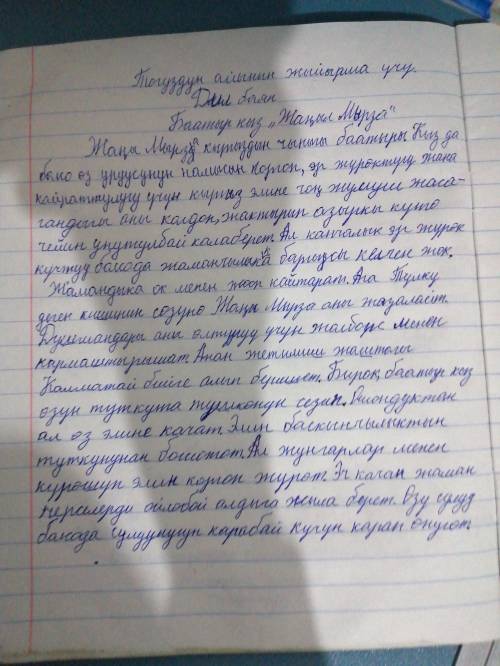 Тогуздун айынын жыйырма үчү.
Дил баян
Баатыр кыз „Жаңыл Мырза"
Жаңы Мырза кыргыздын чыныгы баатыры. Кыз да
болсо өз уруусунун намысын коргоп, эр жүрөктүү жана
кайраттуулугу үчүн кыргыз элине чоң жумуш жаса-
гандагы аны колдоп, жактырып азыркы күнгө
чейин унутулбай калаберет. Ал канчалык эр жүрөк
күчтүү болсода жаманчылыкка баргысы келчен жок.
Жамандыка ок менен жооп кайтарат. Ага Түлкү
деген кишинин сөзүнө Жаңы Мырза аны жазалайт.
Душмандары аны өлтүрүү үчүн жолборс менен
кармаштырышат. Анан жетимиш жаштагы
Калматай бийге алып беришет. Бирок, баатыр кыз
өзүн туткунга түшкөнүн сезип. Ошондуктан
ал өз элине качат. Элин баскынчылыктын
туткунунан бошотот. Ал жунгарлар менен
күрөшүп элин коргоп жүрөт. Эч качан жаман
нерселерди ойлобой алдыга жыла берет. Өзү сулуу
болсода сулуулугун карабай күчүн карап өнүгөт